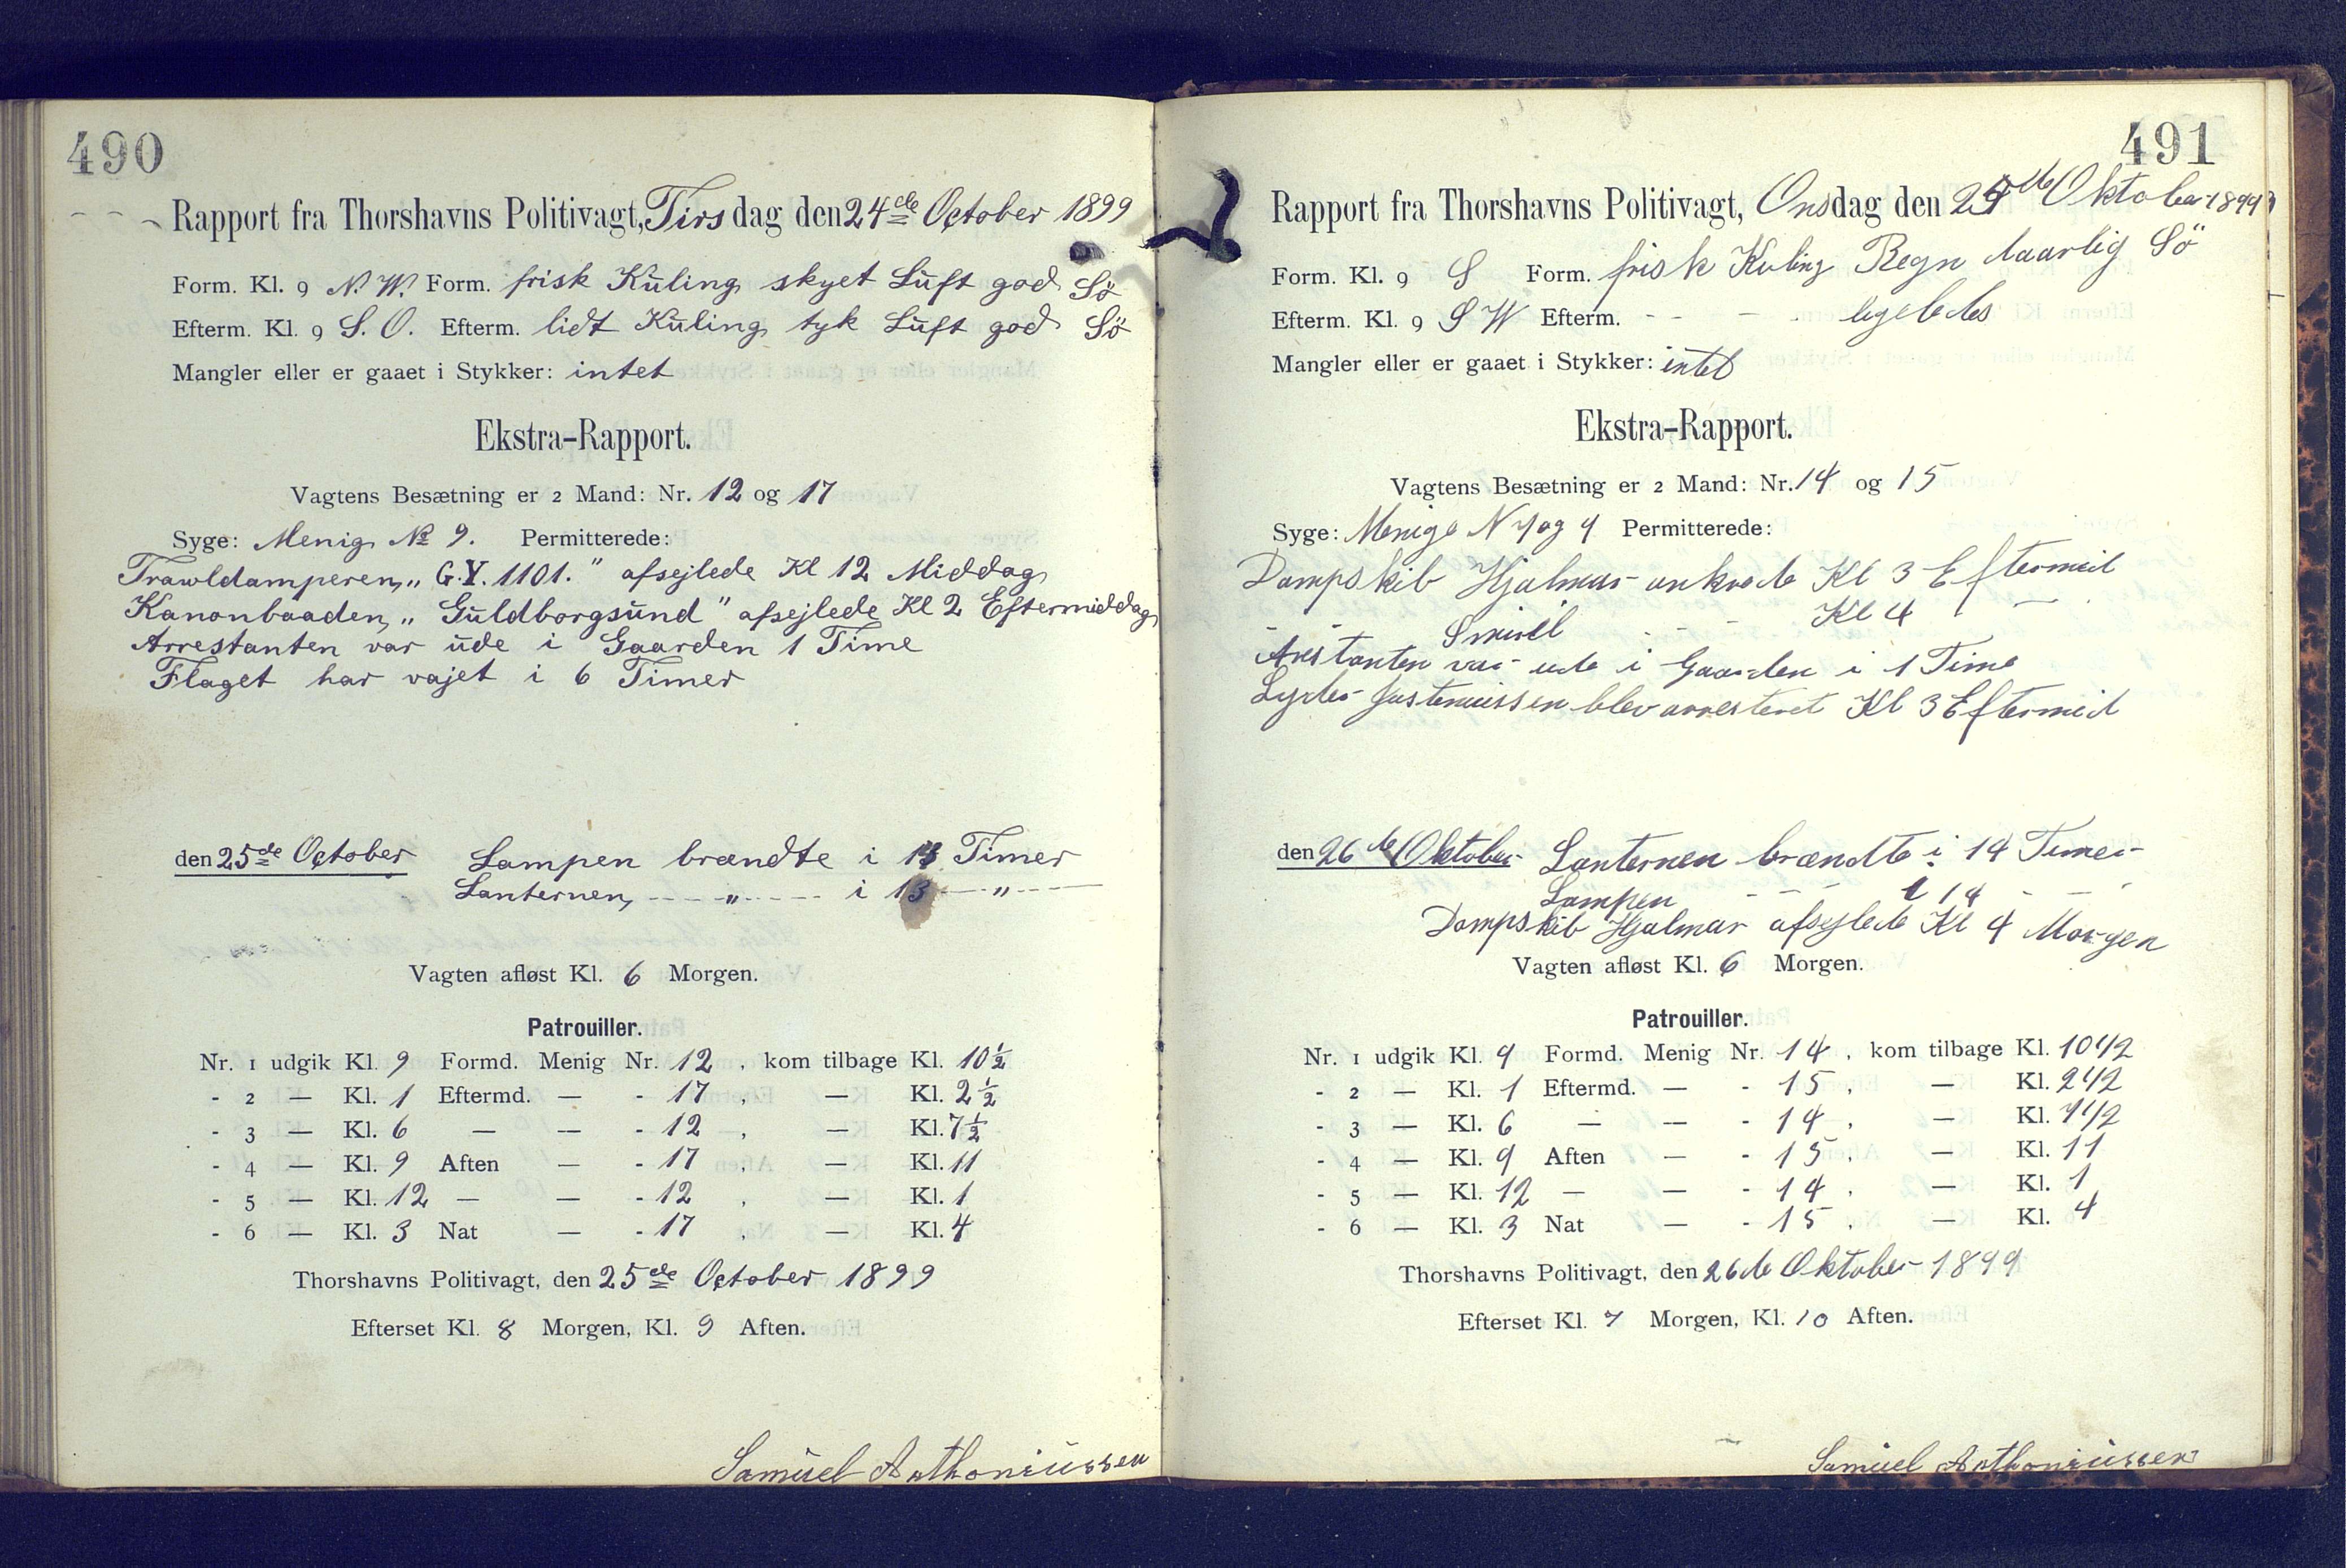 490
Rapport fra Thorshavns Politivagt, Tirsdag den 24de October 1899
Form. Kl. 9 N. W. Form. frisk Kuling skyet Luft god Sö
Efterm. Kl. 9 S. O. Efterm. lidt Kuling tyk Luft god Sö
Mangler eller er gaaet i Stykker: intet
Ekstra-Rapport.
Vagtens Besætning er 2 Mand: Nr. 12 og 17
Syge: Menig No 9. Permitterede:
Trawldamperen, „G.Y. 1101." afsejlede Kl 12 Middag
Kanonbaaden, „Guldborgsund" afsejlede Kl 2 Eftermiddag
Arrestanten var ude i Gaarden 1 Time
Flaget har vajet i 6 Timer
den 25de October Lampen brændte i 13 Timer
Lanternen, - - - „ - - - i 13 - „ -
Vagten afløst Kl. 6 Morgen.
Patrouiller.
Nr. 1 udgik Kl. 9 Formd. Menig Nr. 12, kom tilbage Kl. 10½
- 2 — Kl. 1 Eftermd. — - 17, — Kl. 2½
- 3 — Kl. 6 — — - 12, — Kl. 7½
- 4 — Kl. 9 Aften — - 17, — Kl. 11
- 5 — Kl. 12 — — - 12, — Kl. 1
- 6 — Kl. 3 Nat — - 17, — Kl. 4
Thorshavns Politivagt, den 25de October 1899
Efterset Kl. 8 Morgen, Kl. 9 Aften.
Samuel Anthoniussen
491
Rapport fra Thorshavns Politivagt, Onsdag den 25de Oktober 1899
Form. Kl. 9 S Form. frisk Kuling Regn daarlig Sö
Efterm. Kl. 9 S W Efterm. - - - - ligeledes
Mangler eller er gaaet i Stykker: intet
Ekstra-Rapport.
Vagtens Besætning er 2 Mand: Nr. 14 og 15
Syge: Menige N 7 og 9 Permitterede:
Dampskib Hjalmar ankrede Kl 3 Eftermid
- Smiril - - - Kl 4 -
Arestanten var ude i Gaarden i 1 Time
Justenuissen blev arresteret Kl 3 Eftermid
den 26de Oktober Lanternen brændte i 14 Timer
Lampen - - - i 14 - - -
Dampskib Hjalmar afsejlede Kl 4 Morgen
Vagten afløst Kl. 6 Morgen.
Patrouiller.
Nr. 1 udgik Kl. 9 Formd. Menig Nr. 14, kom tilbage Kl. 10 1/2
- 2 — Kl. 1 Eftermd. — - 15, — Kl. 2 1/2
- 3 — Kl. 6 — — - 14, — Kl. 7 1/2
- 4 — Kl. 9 Aften — - 15, — Kl. 11
- 5 — Kl. 12 — — - 14, — Kl. 1
- 6 — Kl. 3 Nat — - 15, — Kl. 4
Thorshavns Politivagt, den 26de Oktober 1899
Efterset Kl. 7 Morgen, Kl. 10 Aften.
Samuel Anthoniussen